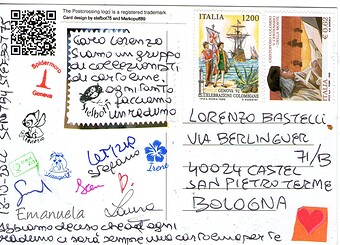 The Postcrossing logo is a registered trademark
Card design by stefbox75 and Markopuff89
Caro Lorenzo
Siamo un gruppo
di collezionisti
di cartoline.
ogni tanto
facciamo
un raduno
Spidermoro
Genova
ITALIA 1200
GENOVA '92
CELEBRAZIONI COLOMBIANE
LORENZO BASTELLI
VIA BERLINGUER
71/B
40024 CASTEL
SAN PIETRO TERME
BOLOGNA
Letizia
Stefano
Irene
Emanuela
Laura
Abbiamo deciso che ad ogni
raduno ci sarà sempre una cartolina per te